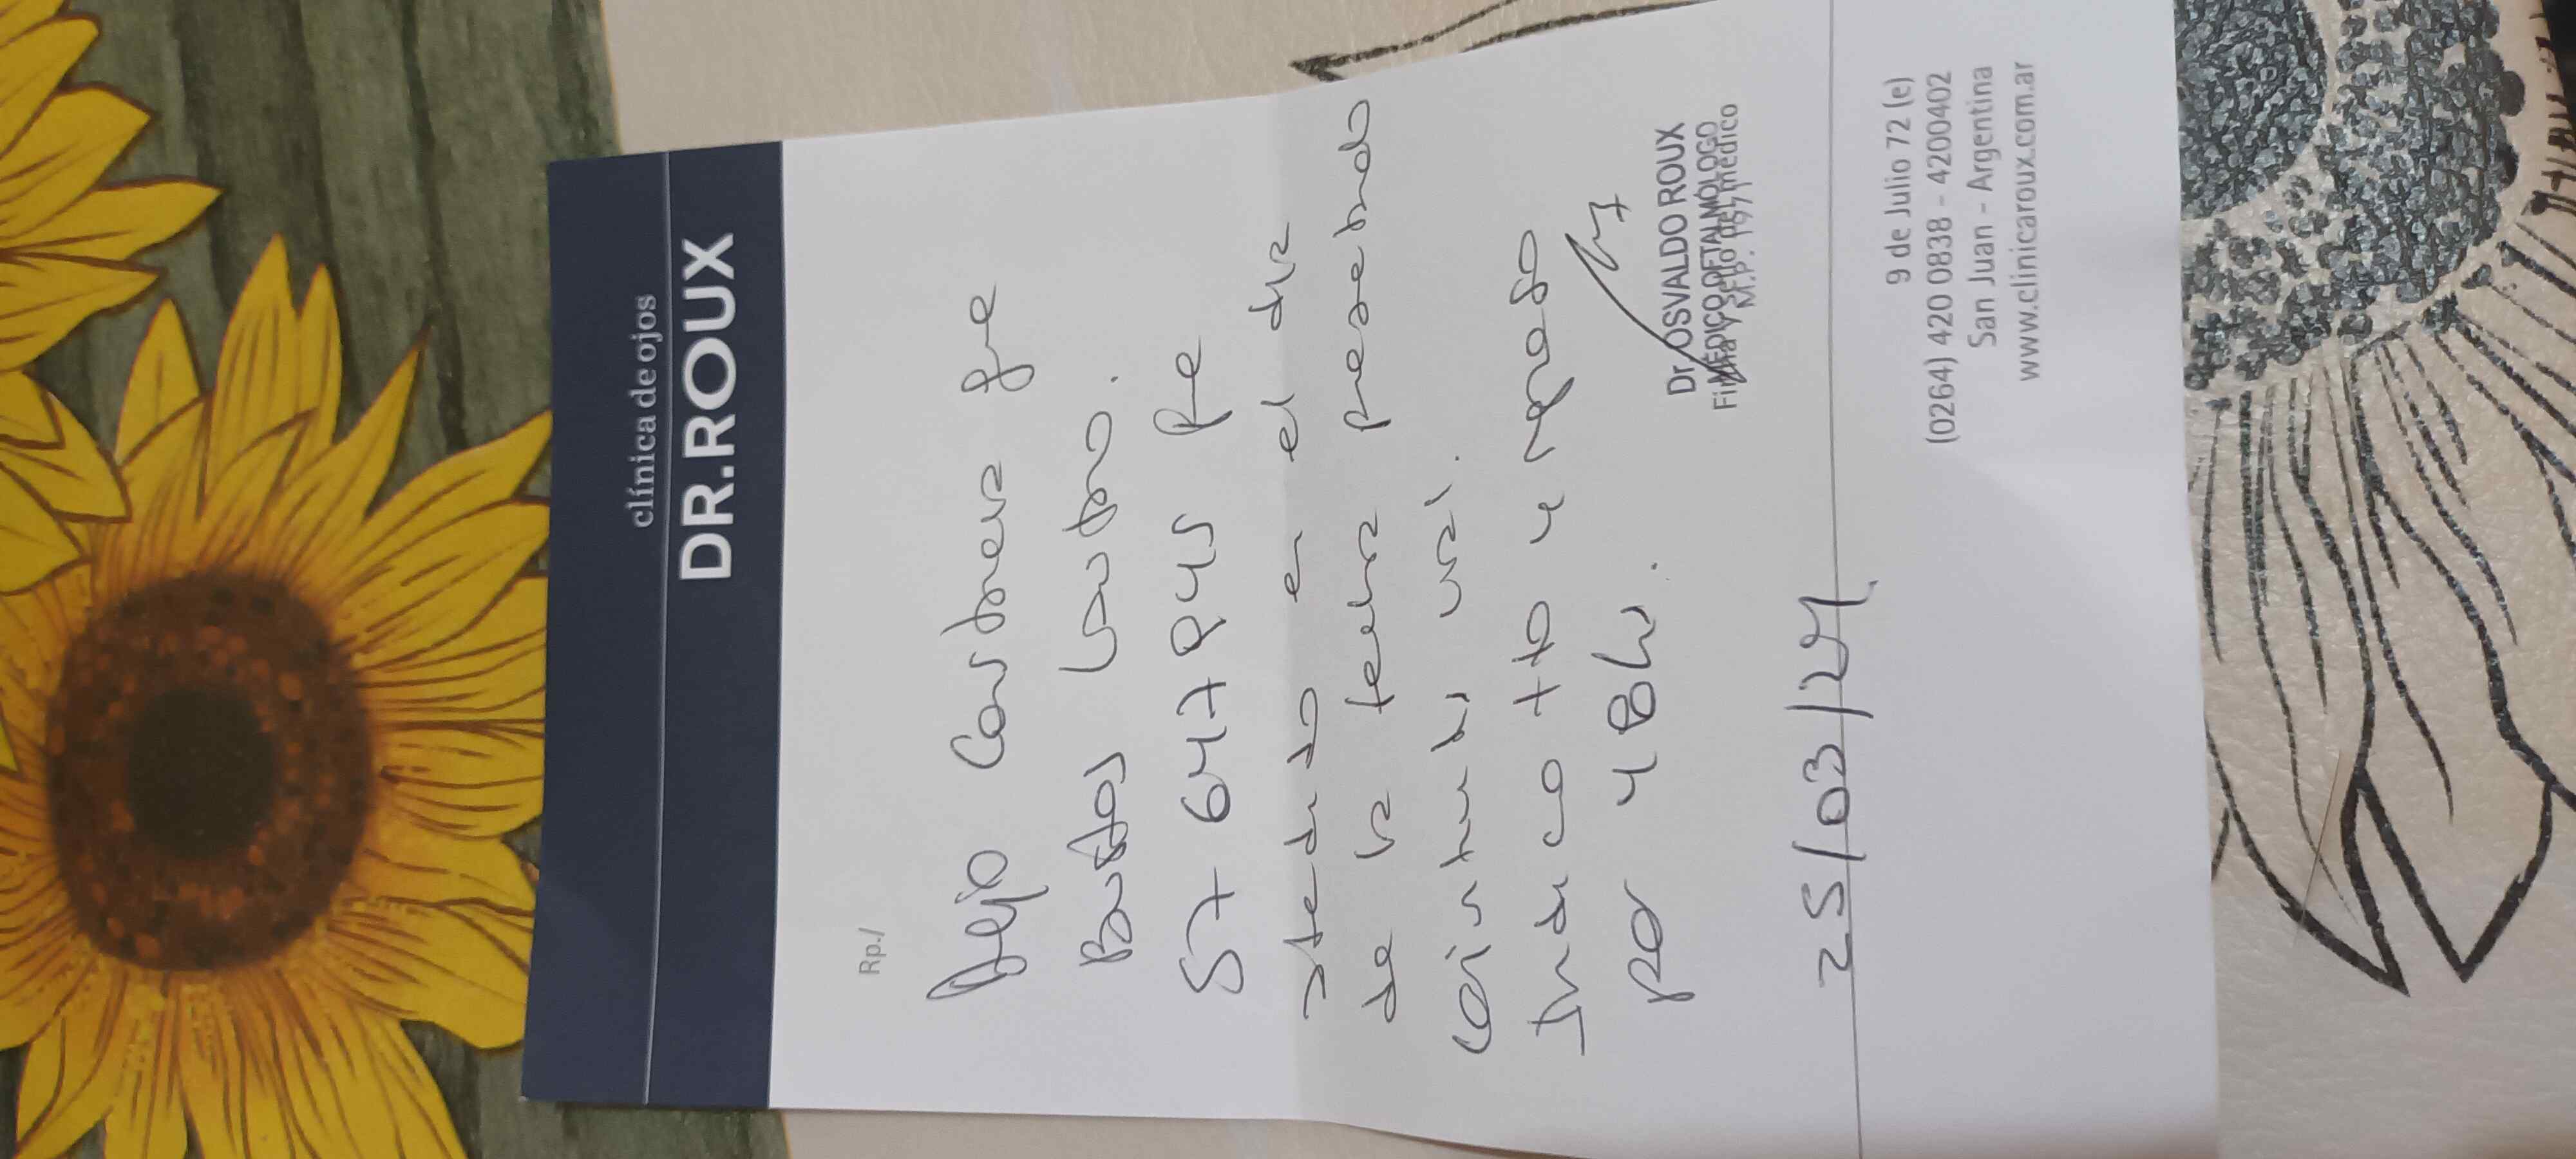 clínica de ojos
DR.ROUX
Rp./
Dejo Constancia que
Bustos Lautaro.
57 647 845 fue
atendido en el dia
de la fecha presentando
Conjuntivitis viral.
Indico tto y reposo
por 48hs.
Dr OSVALDO ROUX
MÉDICO OFTALMÓLOGO
Firma y sello del médico
M.P. 1971
25/03/24
9 de Julio 72 (e)
(0264) 420 0838 - 4200402
San Juan - Argentina
www.clinicaroux.com.ar